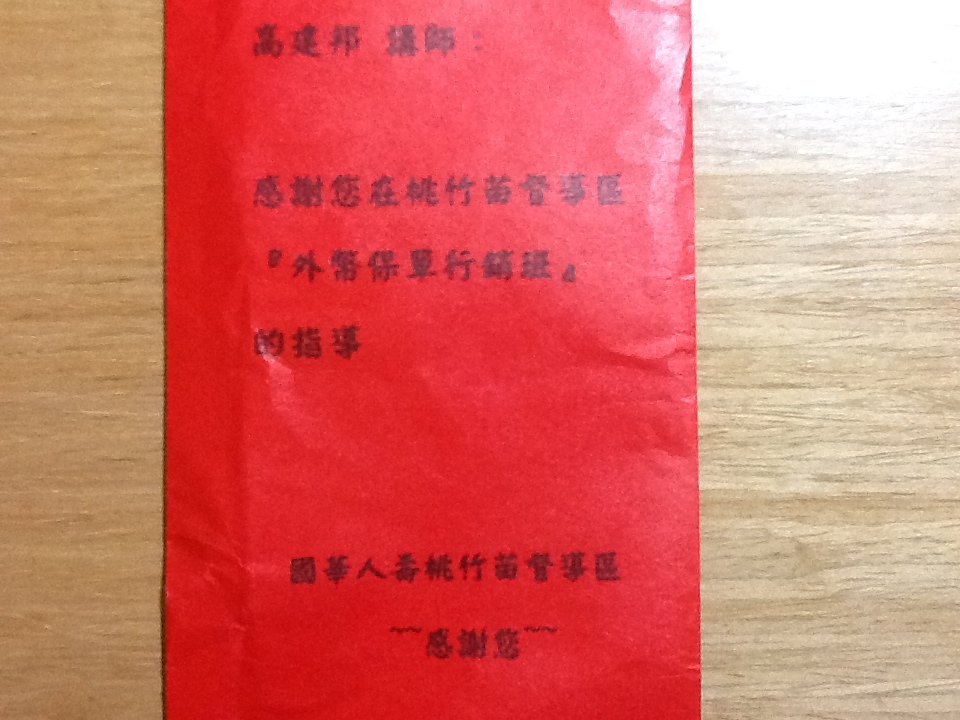 高建邦 講師：
感謝您在桃竹苗督導區
『外幣保單行銷班』
的指導
國華人壽桃竹苗督導區
~~感謝您~~